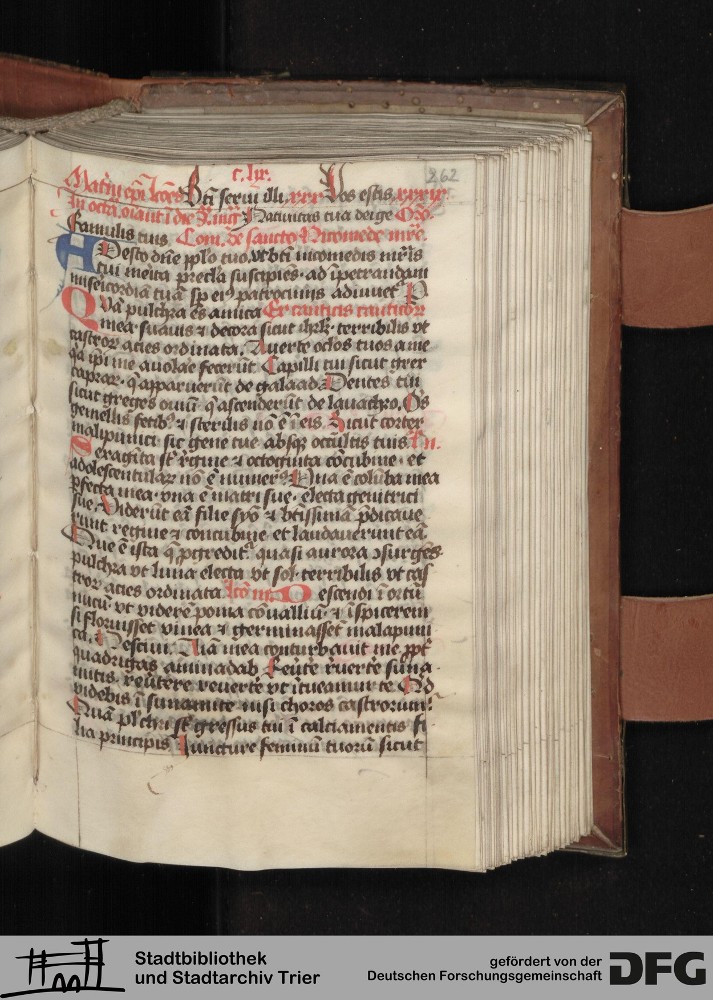 c. lix.
262
Bti serui illi. xxx Vos estis. xxxix.
In octa. Natiuitas tua deige Oro.
famulis tuis. Com. de sancto Nicomede mre.
Adesto dne pplo tuo. vt bti nicomedis mris
tui merita preclara suscipies. ad ipetrandam
misericordia tua sp ei patrocinijs adiuuet. P
Qva pulchra es amica Ex canticis canticor
mea. suauis & decora sicut ihrlm. terribilis vt
castror acies ordinata. Auerte oclos tuos a me
qa ipi me auolae fecerut Capilli tui sicut grex
caprar. q apparuerut de galaad. Dentes tui
sicut greges ouiu. q ascenderut de lauachro. Os
gemellis fetib. & sterilis no e i eis. Sicut cortex
malipunici. sic gene tue absq occultis tuis
Sexaginta st rgine & octoginta cocubine. et
adolescentular no e numer. Vna e coluba mea
pfecta mea. vna e matri sue. electa genitrici
sue. Viderut ea filie syo & btissima pdicaue
runt regine & concubine et laudauerunt ea.
Que e ista q pgredit. quasi aurora osurges.
pulchra vt luna electa vt sol. terribilis vt cas
tror acies ordinata. Descendi i ortu
nucu. vt videre poma coualliu. & ispicerem
si floruisset vinea & germinasset malapuni
ca. Nesciui. Aia mea conturbauit me ppt
quadrigas aminadab Reuerte reuerte suna
mitis. reutere reuerte vt itueamur te Qd
videbis i sunamite nisi choros castrorum.
Qua plchri st gressus tui i calciamentis fi
lia principis Iuncture feminu tuoru sicut
Stadtbibliothek
und Stadtarchiv Trier
gefördert von der
Deutschen Forschungsgemeinschaft DFG